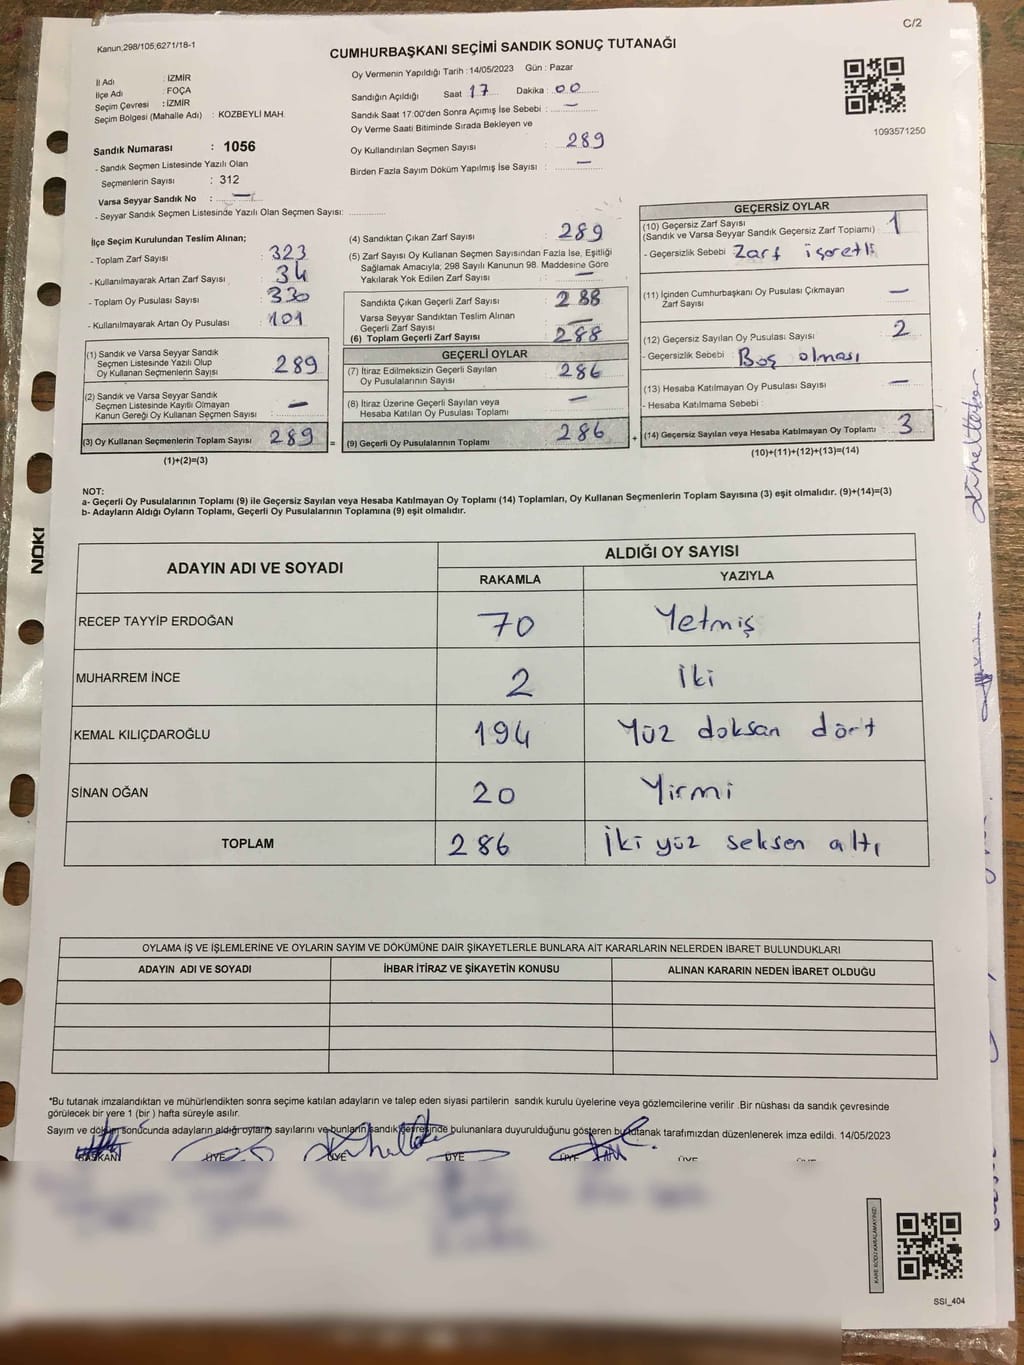 C/2
Kanun,298/105;6271/18-1
CUMHURBAŞKANI SEÇİMİ SANDIK SONUÇ TUTANAĞI
İl Adı : İZMİR
İlçe Adı : FOÇA
Seçim Çevresi : İZMİR
Seçim Bölgesi (Mahalle Adı) : KOZBEYLİ MAH.
Sandık Numarası : 1056
- Sandık Seçmen Listesinde Yazılı Olan
Seçmenlerin Sayısı : 312
Varsa Seyyar Sandık No : —
- Seyyar Sandık Seçmen Listesinde Yazılı Olan Seçmen Sayısı:
Oy Vermenin Yapıldığı Tarih : 14/05/2023 Gün : Pazar
Sandığın Açıldığı Saat 17 Dakika : 00
Sandık Saat 17:00'den Sonra Açımış İse Sebebi : —
Oy Verme Saati Bitiminde Sırada Bekleyen ve
Oy Kullandırılan Seçmen Sayısı : 289
Birden Fazla Sayım Döküm Yapılmış İse Sayısı : —
1093571250
İlçe Seçim Kurulundan Teslim Alınan;
- Toplam Zarf Sayısı : 323
- Kullanılmayarak Artan Zarf Sayısı : 34
- Toplam Oy Pusulası Sayısı : 330
- Kullanılmayarak Artan Oy Pusulası : 101
(1) Sandık ve Varsa Seyyar Sandık
Seçmen Listesinde Yazılı Olup
Oy Kullanan Seçmenlerin Sayısı 289
(2) Sandık ve Varsa Seyyar Sandık
Seçmen Listesinde Kayıtlı Olmayan
Kanun Gereği Oy Kullanan Seçmen Sayısı : —
(3) Oy Kullanan Seçmenlerin Toplam Sayısı 289 =
(1)+(2)=(3)
(4) Sandıktan Çıkan Zarf Sayısı : 289
(5) Zarf Sayısı Oy Kullanan Seçmen Sayısından Fazla İse, Eşitliği
Sağlamak Amacıyla; 298 Sayılı Kanunun 98. Maddesine Göre
Yakılarak Yok Edilen Zarf Sayısı : —
Sandıkta Çıkan Geçerli Zarf Sayısı : 288
Varsa Seyyar Sandıktan Teslim Alınan
Geçerli Zarf Sayısı : —
(6) Toplam Geçerli Zarf Sayısı : 288
GEÇERLİ OYLAR
(7) İtiraz Edilmeksizin Geçerli Sayılan
Oy Pusulalarının Sayısı : 286
(8) İtiraz Üzerine Geçerli Sayılan veya
Hesaba Katılan Oy Pusulası Toplamı : —
(9) Geçerli Oy Pusulalarının Toplamı : 286 +
GEÇERSİZ OYLAR
(10) Geçersiz Zarf Sayısı
(Sandık ve Varsa Seyyar Sandık Geçersiz Zarf Toplamı) : 1
- Geçersizlik Sebebi : Zarf işaretli
(11) İçinden Cumhurbaşkanı Oy Pusulası Çıkmayan
Zarf Sayısı : —
(12) Geçersiz Sayılan Oy Pusulası Sayısı : 2
- Geçersizlik Sebebi : Boş olması
(13) Hesaba Katılmayan Oy Pusulası Sayısı : —
- Hesaba Katılmama Sebebi :
(14) Geçersiz Sayılan veya Hesaba Katılmayan Oy Toplamı : 3
(10)+(11)+(12)+(13)=(14)
NOT:
a- Geçerli Oy Pusulalarının Toplamı (9) ile Geçersiz Sayılan veya Hesaba Katılmayan Oy Toplamı (14) Toplamları, Oy Kullanan Seçmenlerin Toplam Sayısına (3) eşit olmalıdır. (9)+(14)=(3)
b- Adayların Aldığı Oyların Toplamı, Geçerli Oy Pusulalarının Toplamına (9) eşit olmalıdır.
NOKI
ADAYIN ADI VE SOYADI ALDIĞI OY SAYISI
RAKAMLA YAZIYLA
RECEP TAYYİP ERDOĞAN 70 Yetmiş
MUHARREM İNCE 2 İki
KEMAL KILIÇDAROĞLU 194 Yüz doksan dört
SİNAN OĞAN 20 Yirmi
TOPLAM 286 İki yüz seksen altı
OYLAMA İŞ VE İŞLEMLERİNE VE OYLARIN SAYIM VE DÖKÜMÜNE DAİR ŞİKAYETLERLE BUNLARA AİT KARARLARIN NELERDEN İBARET BULUNDUKLARI
ADAYIN ADI VE SOYADI İHBAR İTİRAZ VE ŞİKAYETİN KONUSU ALINAN KARARIN NEDEN İBARET OLDUĞU
*Bu tutanak imzalandıktan ve mühürlendikten sonra seçime katılan adayların ve talep eden siyasi partilerin sandık kurulu üyelerine veya gözlemcilerine verilir .Bir nüshası da sandık çevresinde
görülecek bir yere 1 (bir ) hafta süreyle asılır.
Sayım ve döküm sonucunda adayların aldığı oyların sayılarını ve bunların sandık çevresinde bulunanlara duyurulduğunu gösteren bu tutanak tarafımızdan düzenlenerek imza edildi. 14/05/2023
BAŞKAN ÜYE ÜYE ÜYE ÜYE ÜYE
KARE KODU KARALAMAYINIZ!
SSI_404